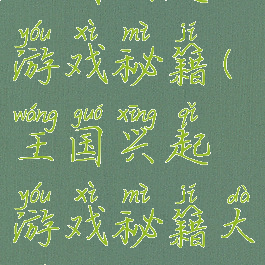 yóu xì mì jí
游戏秘籍(
wáng guó xīng qǐ
王国兴起
yóu xì mì jí dà
游戏秘籍大